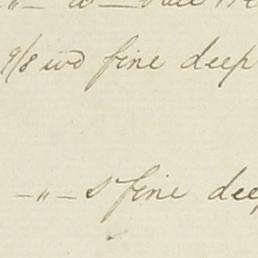 9/8 wd fine deep
-"- S fine dee